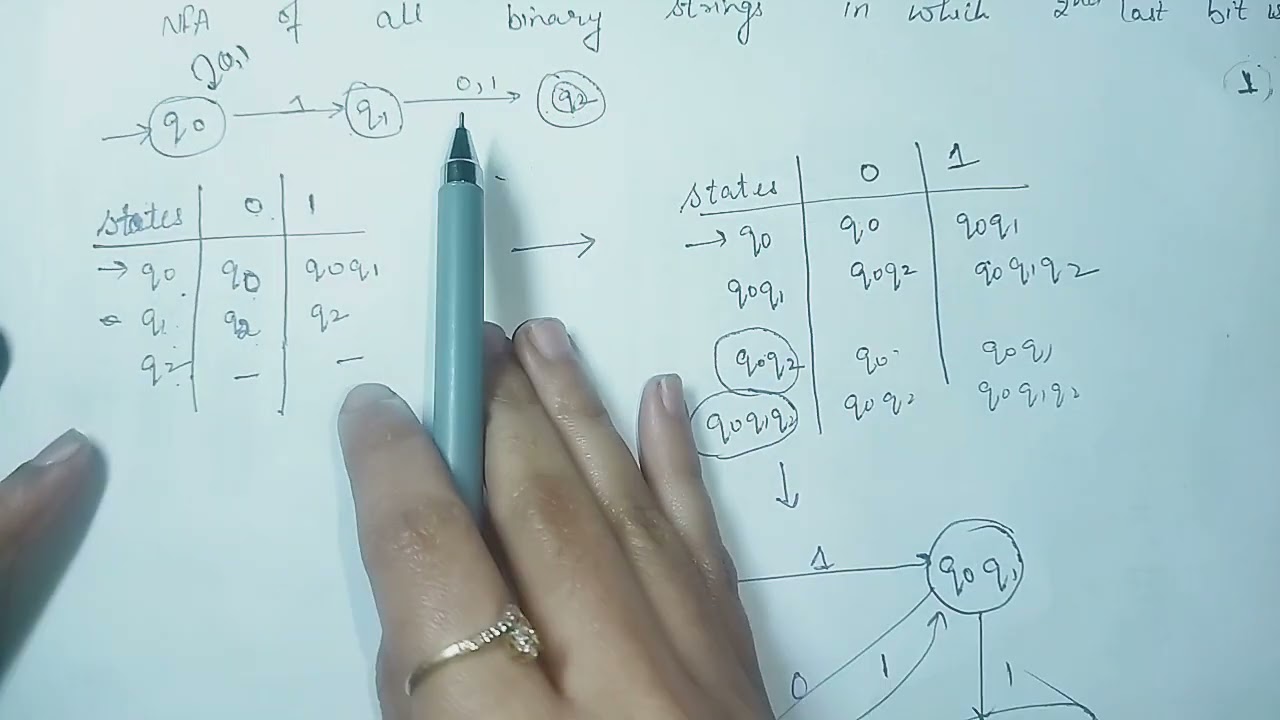 NFA of all binary strings in which 2nd last bit is
1
0,1
q0 1 q1 0,1 q2
states 0 1
→ q0 q0 q0q1
q1 q2 q2
q2 – –
→
states 0 1
→ q0 q0 q0q1
q0q1 q0q2 q0q1q2
q0q2 q0 q0q1
q0q1q2 q0q2 q0q1q2
1 q0q1
0 1 1